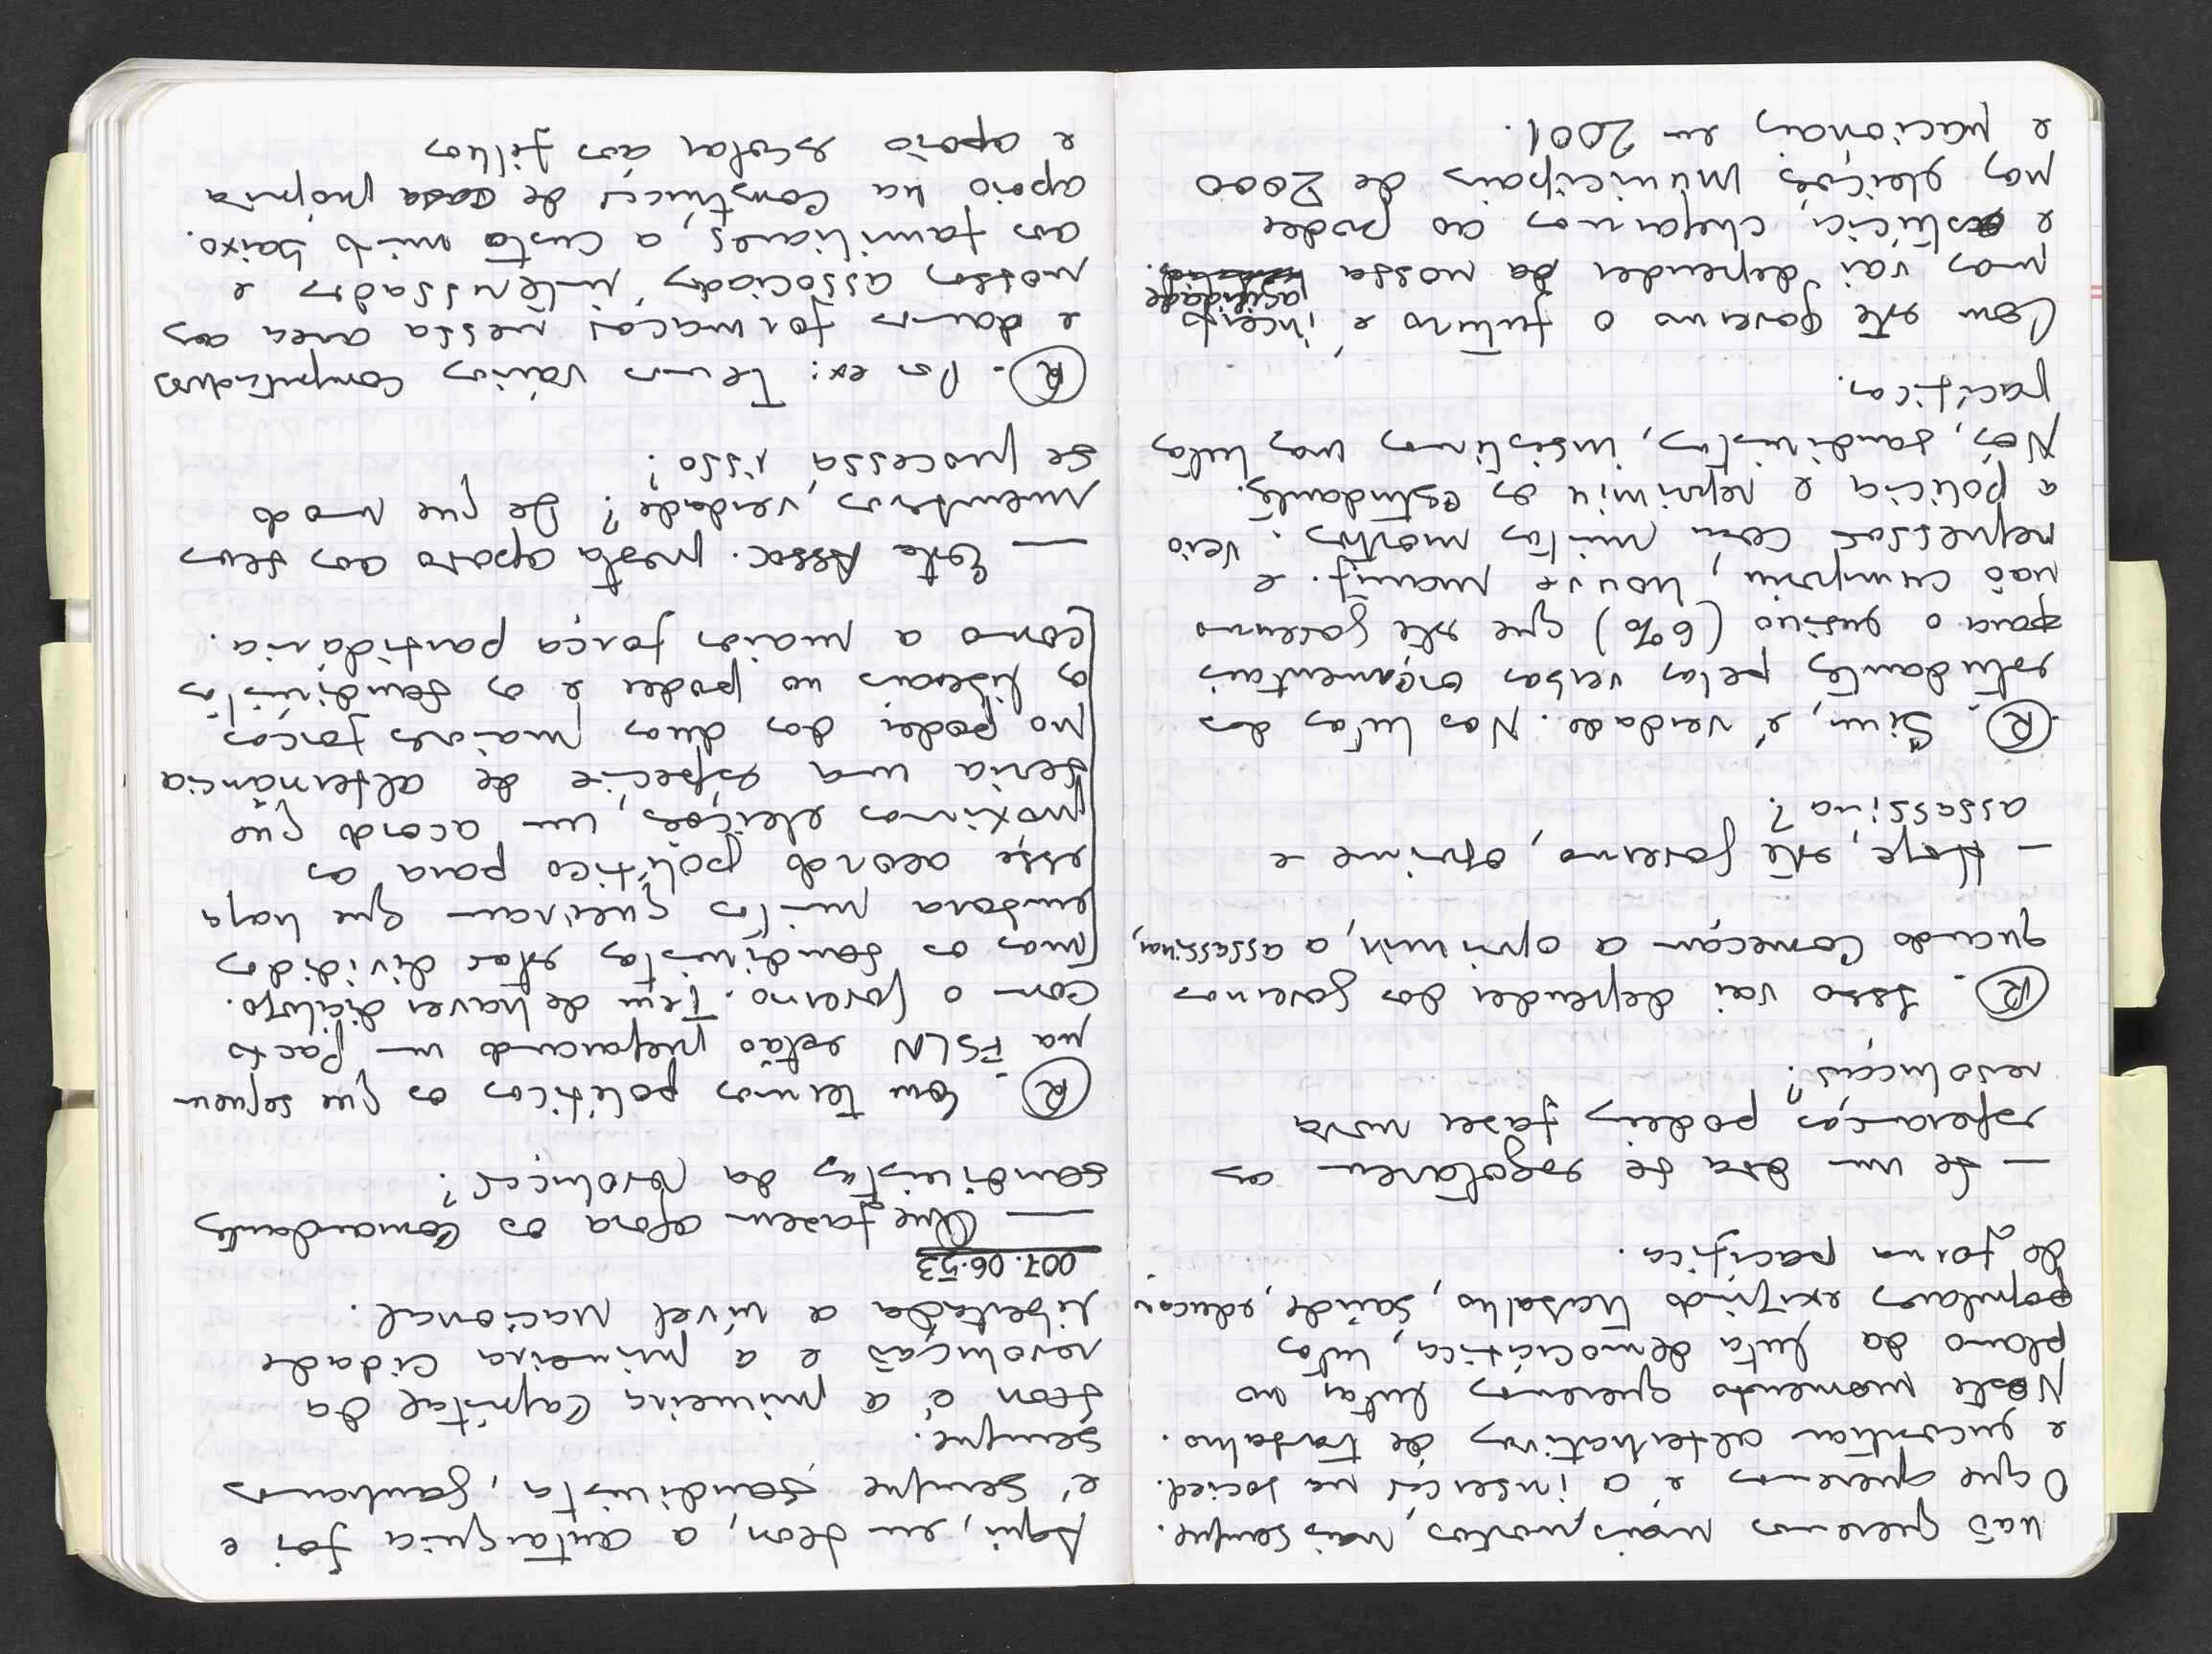 não queremos mais mortos, mais sangue.
O que queremos é a inserção na socied.
e encontrar alternativas de trabalho.
Neste momento queremos lutar no
plano da luta democrática, lutas
populares exigindo trabalho, saúde, educaç.
de forma pacífica.
— Se um dia se esgotarem as
esperanças podeis fazer nova
revolução?
(R). Isso vai depender dos governos
quando começam a oprimir, a assassinar,
— Hoje, este governo, oprime e
assassina?
(R). Sim, é verdade. Nas lutas dos
estudantes pelas verbas orçamentais
para o ensino (6%) que este governo
não cumpriu, houve manif. e
repressão com muitos mortos. Veio
a polícia e reprimiu os estudantes.
Nós, sandinistas, insistimos nas lutas
pacíficas.
Com este governo o futuro é incerto
mas vai depender da nossa agilidade
e astúcia, chegarmos ao poder
nas eleições municipais de 2000
e nacionais em 2001.
Aqui, em Leon, a autarquia foi e
é sempre sandinista, ganhamos
sempre.
Leon é a primeira Capital da
revolução e a primeira cidade
libertada a nível nacional.
007.06.53
— Que fazem agora os Comandantes
sandinistas da revolução?
(R). Em termos políticos os que seguem
na FSLN estão preparando um Pacto
com o governo. Tem de haver diálogo.
mas os sandinistas estão divididos
embora muitos queiram que haja
esse acordo político para as
próximas eleições, um acordo que
seria uma espécie de alternância
no poder das duas maiores forças
os liberais no poder e os sandinistas
como a maior força partidária.
— Esta Assoc. presta apoio aos seus
membros, verdade? De que modo
se processa isso?
(R). Por ex: Temos vários computadores
e damos formação nessa area aos
nossos associados, interessados e
aos familiares, a custo muito baixo.
apoio na construção de casa própria
e apoio escolar aos filhos